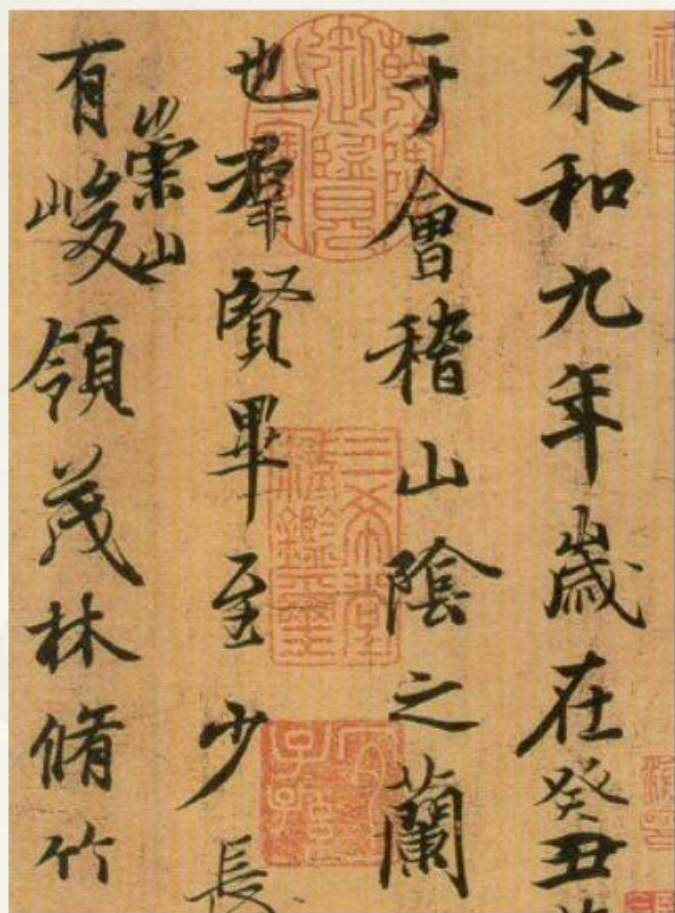 永和九年歲在癸丑
于會稽山陰之蘭
也羣賢畢至少長
有崇山峻領茂林脩竹